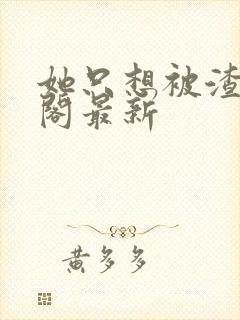 她只想被渣
阁最新
黄多多